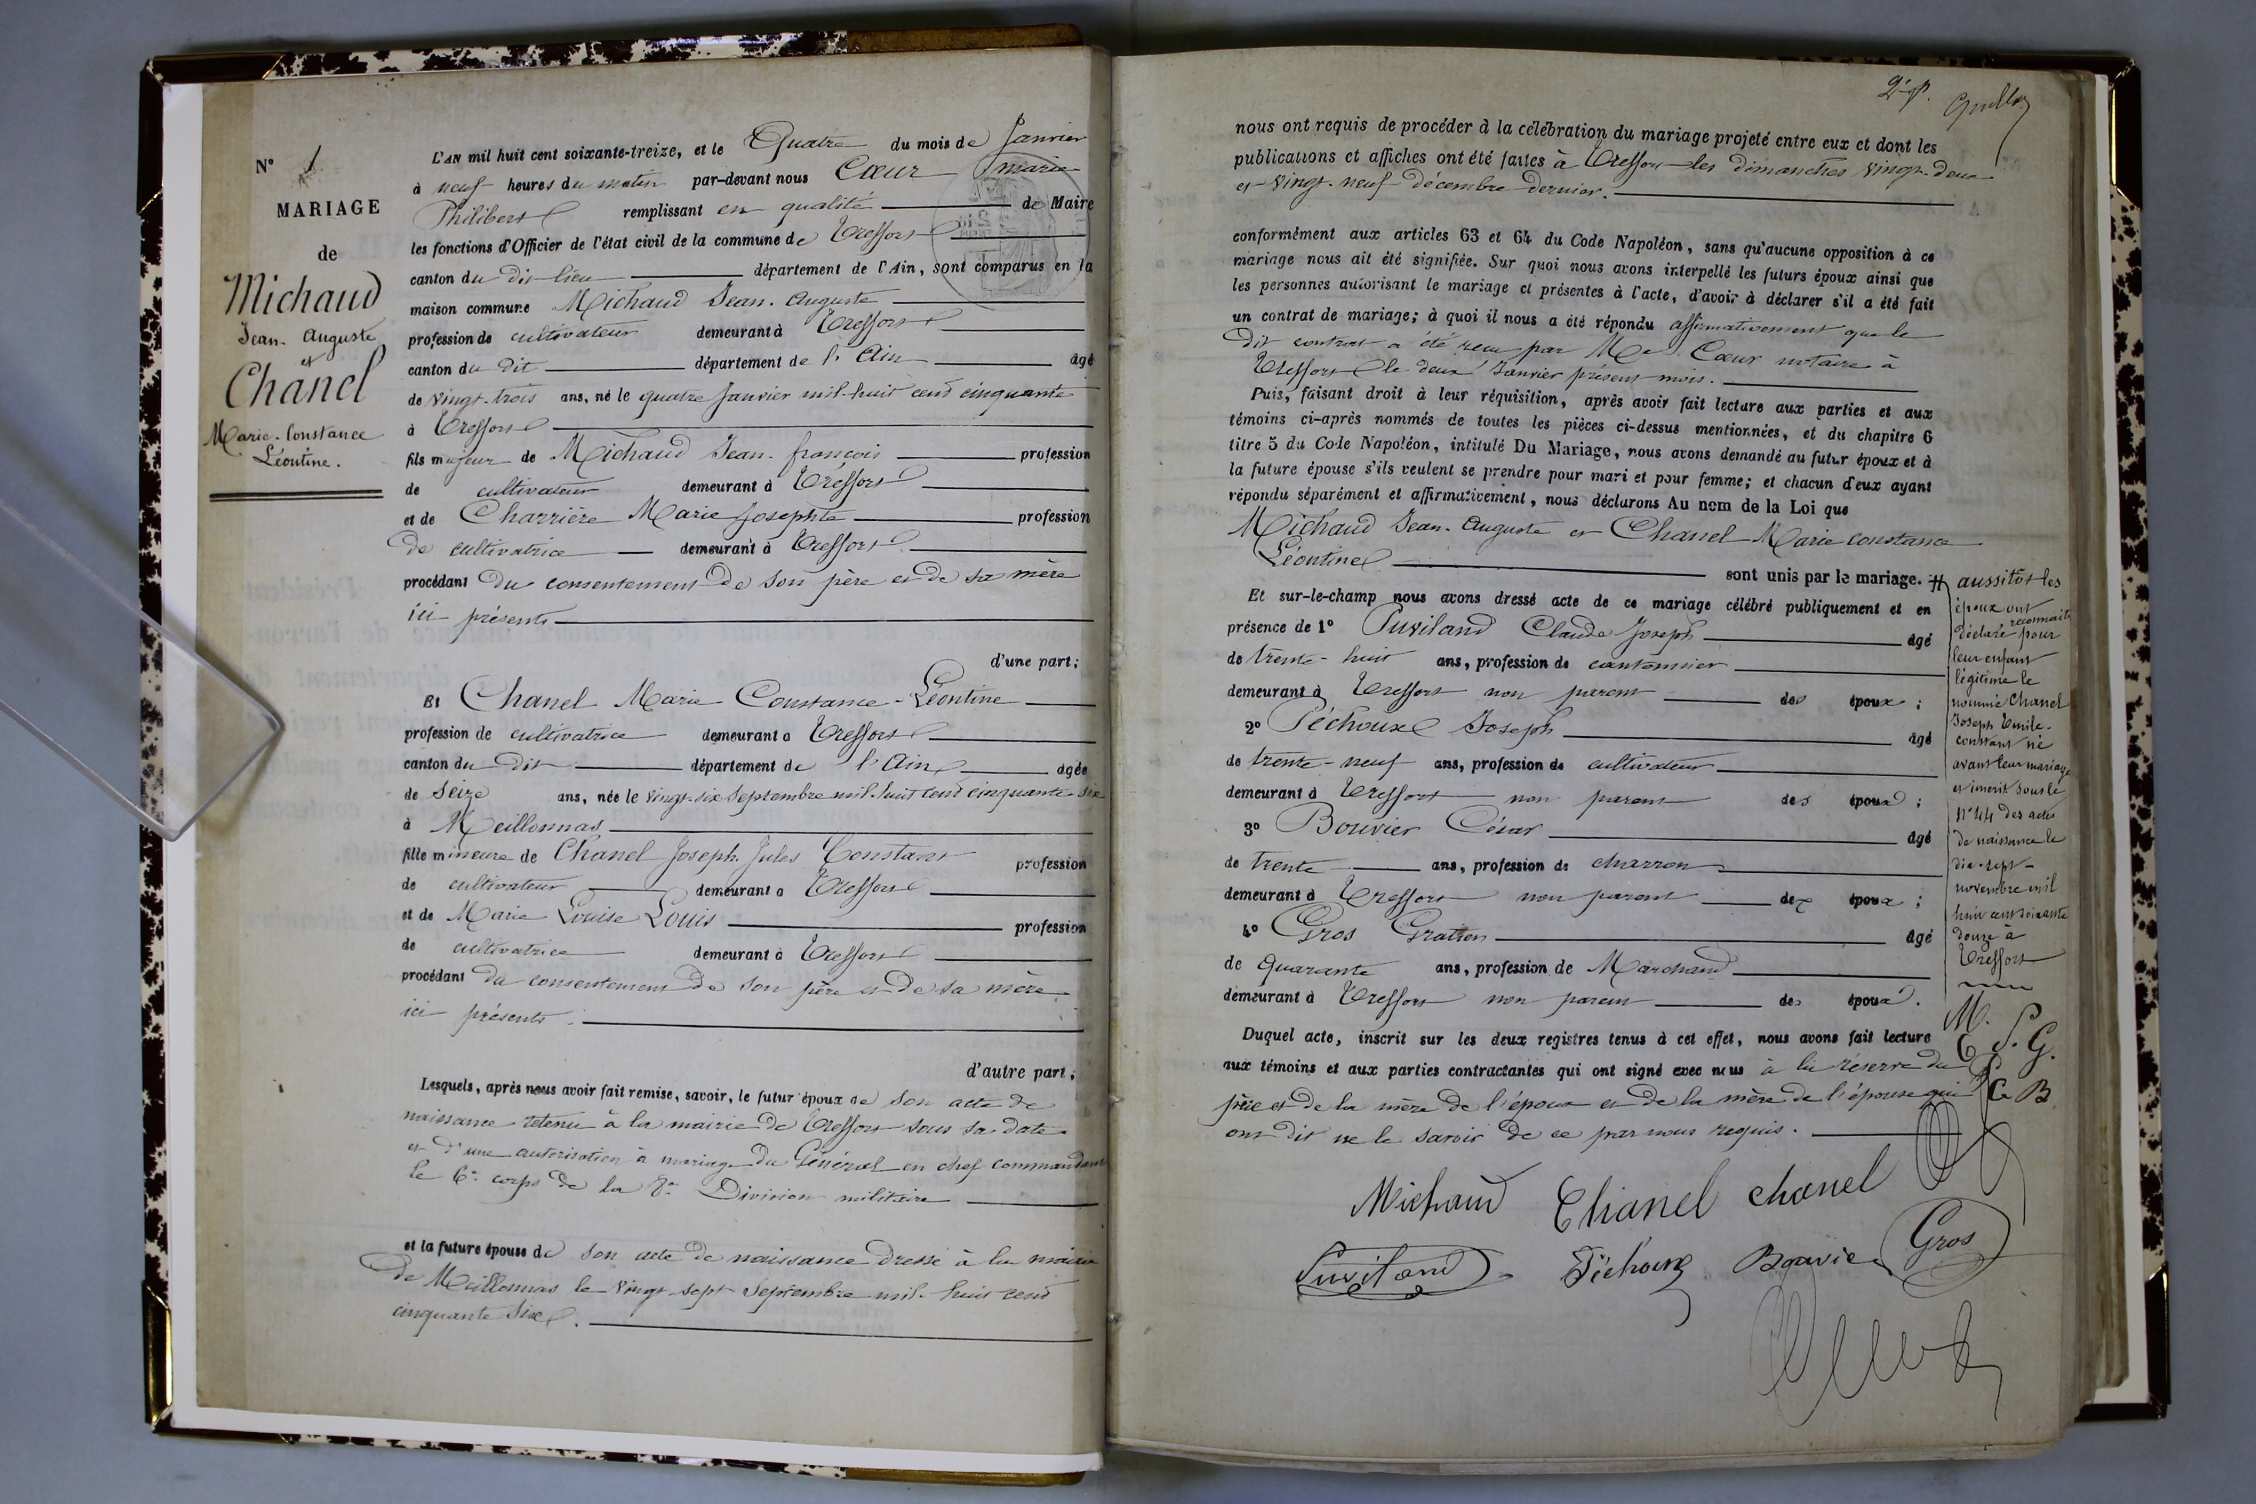 N° 1
MARIAGE
de
Michaud
Jean-Auguste
et
Chanel
Marie-Constance
Léontine.
L'AN mil huit cent soixante-treize, et le Quatre du mois de Janvier
à neuf heures du matin par-devant nous Cœur Marie
Philibert remplissant en qualité de Maire
les fonctions d'Officier de l'état civil de la commune de Treffort
canton du dit lieu département de l'Ain, sont comparus en la
maison commune Michaud Jean-Auguste
profession de cultivateur demeurant à Treffort
canton du dit département de l'Ain âgé
de vingt-trois ans, né le quatre Janvier mil-huit cent cinquante
à Treffort
fils majeur de Michaud Jean-françois profession
de cultivateur demeurant à Tréffort
et de Charrière Marie Josephte profession
de cultivatrice demeurant à Treffort
procédant du consentement de son père et de sa mère
ici présents
d'une part;
Et Chanel Marie Constance-Léontine
profession de cultivatrice demeurant à Treffort
canton du dit département de l'Ain âgée
de seize ans, née le vingt-six Septembre mil-huit cent cinquante-six
à Meillonnas
fille mineure de Chanel Joseph Jules Constant profession
de cultivateur demeurant à Treffort
et de Marie Louise Louis profession
de cultivatrice demeurant à Treffort
procédant du consentement de son père et de sa mère
ici présents.
d'autre part;
Lesquels, après nous avoir fait remise, savoir, le futur époux de son acte de
naissance retenu à la mairie de Treffort sous sa date
et d'une autorisation à mariage du Général en chef commandant
le 6e corps de la 8e Division militaire
et la future épouse de son acte de naissance dressé à la mairie
de Meillonnas le vingt-sept Septembre mil-huit cent
cinquante six.
2e f.
nous ont requis de procéder à la célébration du mariage projeté entre eux et dont les
publications et affiches ont été faites à Treffort les dimanches vingt-deux
et vingt-neuf décembre dernier.
conformément aux articles 63 et 64 du Code Napoléon, sans qu'aucune opposition à ce
mariage nous ait été signifiée. Sur quoi nous avons interpellé les futurs époux ainsi que
les personnes autorisant le mariage et présentes à l'acte, d'avoir à déclarer s'il a été fait
un contrat de mariage; à quoi il nous a été répondu affirmativement que le
dit contrat a été reçu par Me Cœur notaire à
Treffort le deux Janvier présent mois.
Puis, faisant droit à leur réquisition, après avoir fait lecture aux parties et aux
témoins ci-après nommés de toutes les pièces ci-dessus mentionnées, et du chapitre 6
titre 5 du Code Napoléon, intitulé Du Mariage, nous avons demandé au futur époux et à
la future épouse s'ils veulent se prendre pour mari et pour femme; et chacun d'eux ayant
répondu séparément et affirmativement, nous déclarons Au nom de la Loi que
Michaud Jean-Auguste et Chanel Marie constance
Léontine
sont unis par le mariage. #
Et sur-le-champ nous avons dressé acte de ce mariage célébré publiquement et en
présence de 1° Puvilland Claude Joseph âgé
de trente-huit ans, profession de cantonnier
demeurant à Treffort non parent des époux;
2° Péchoux Joseph âgé
de trente-neuf ans, profession de cultivateur
demeurant à Treffort non parent des époux;
3° Bouvier César âgé
de trente ans, profession de charron
demeurant à Treffort non parent des époux;
4° Gros Gratien âgé
de quarante ans, profession de Marchand
demeurant à Treffort non parent des époux.
Duquel acte, inscrit sur les deux registres tenus à cet effet, nous avons fait lecture
aux témoins et aux parties contractantes qui ont signé avec nous à la réserve du
père et de la mère de l'époux et de la mère de l'épouse qui
ont dit ne le savoir de ce par nous requis.
# aussitôt les
époux ont
déclaré reconnaitre pour
leur enfant
légitime le
nommé Chanel
Joseph Emile-
constant né
avant leur mariage
et inscrit sous le
n° 44 des actes
de naissance le
dix-sept
novembre mil
huit cent soixante
douze à
Treffort
M.
C P. G.
C B
Michaud Chanel chanel
Puviland Péchoux Bouvier Gros